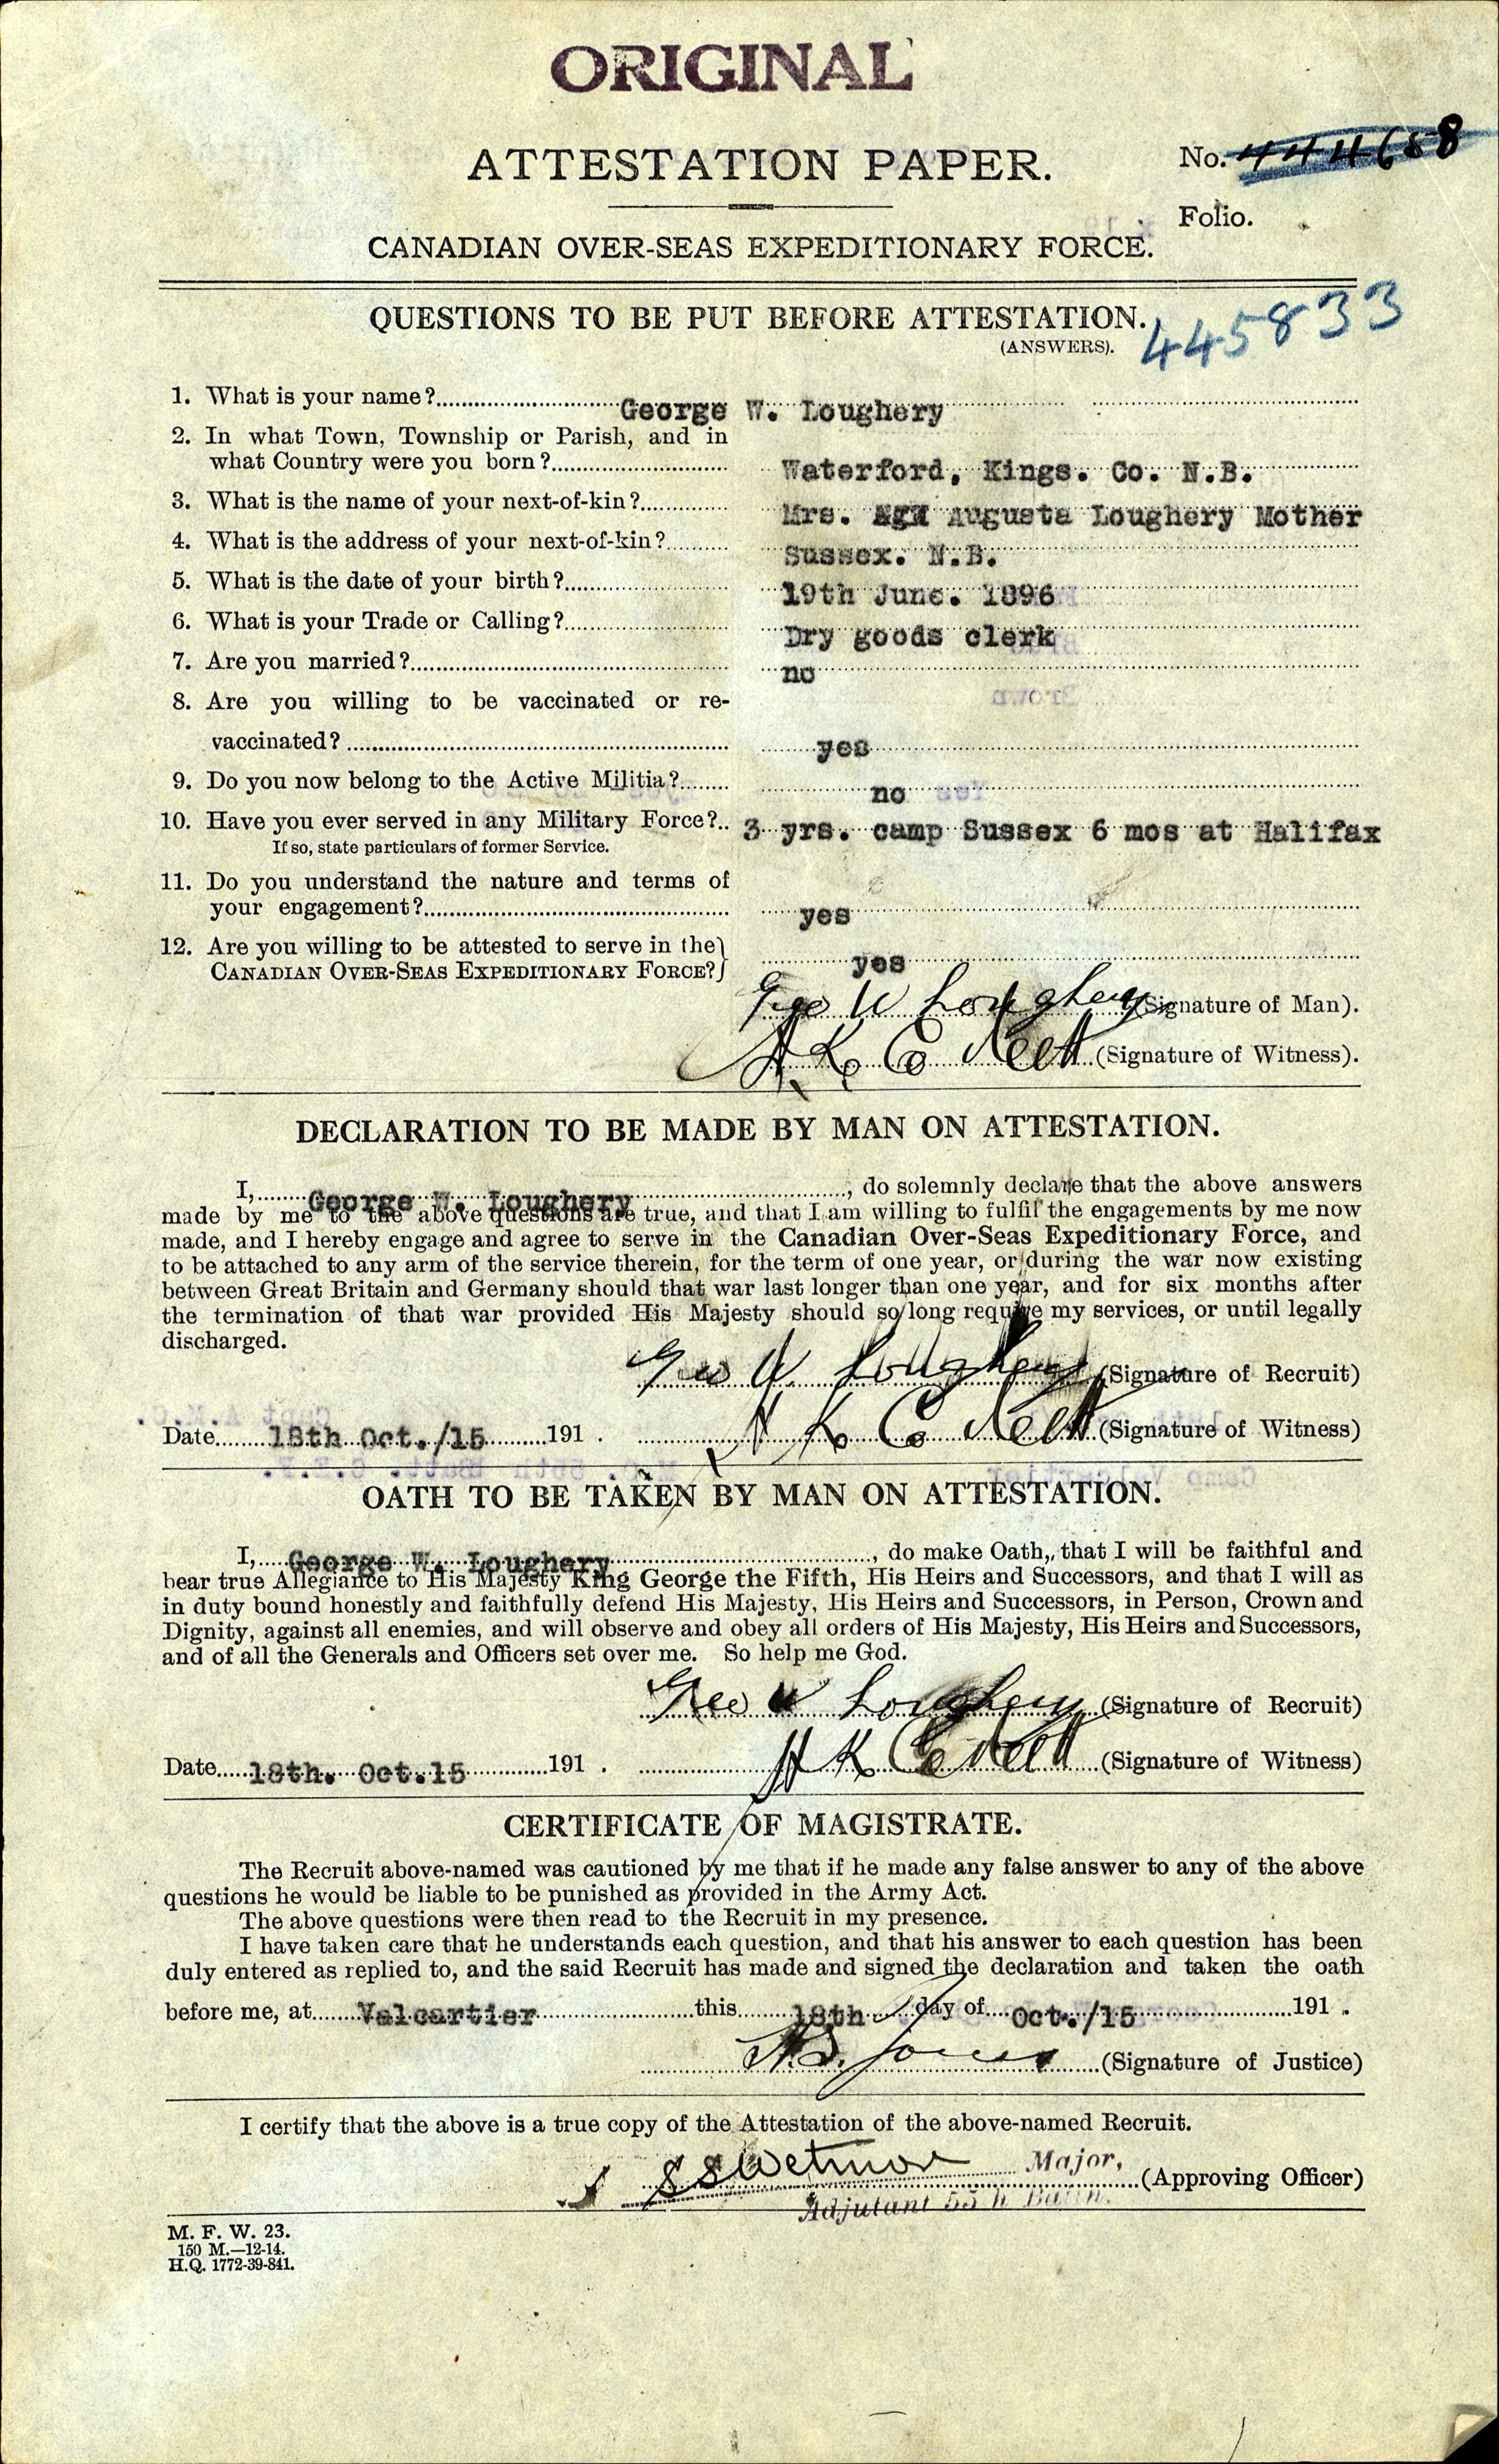 ORIGINAL
ATTESTATION PAPER.
No. 444658
Folio.
CANADIAN OVER-SEAS EXPEDITIONARY FORCE.
QUESTIONS TO BE PUT BEFORE ATTESTATION.
445833
(ANSWERS).
1. What is your name? George W. Loughery
2. In what Town, Township or Parish, and in
what Country were you born? Waterford, Kings. Co. N.B.
3. What is the name of your next-of-kin? Mrs. Augusta Loughery Mother
4. What is the address of your next-of-kin? Sussex. N.B.
5. What is the date of your birth? 19th June. 1896
6. What is your Trade or Calling? Dry goods clerk
7. Are you married? no
8. Are you willing to be vaccinated or re-
vaccinated? yes
9. Do you now belong to the Active Militia? no
10. Have you ever served in any Military Force? 3 yrs. camp Sussex 6 mos at Halifax
If so, state particulars of former Service.
11. Do you understand the nature and terms of
your engagement? yes
12. Are you willing to be attested to serve in the
CANADIAN OVER-SEAS EXPEDITIONARY FORCE? yes
Geo W Loughery (Signature of Man).
(Signature of Witness).
DECLARATION TO BE MADE BY MAN ON ATTESTATION.
I, George W. Loughery, do solemnly declare that the above answers
made by me to the above questions are true, and that I am willing to fulfil the engagements by me now
made, and I hereby engage and agree to serve in the Canadian Over-Seas Expeditionary Force, and
to be attached to any arm of the service therein, for the term of one year, or during the war now existing
between Great Britain and Germany should that war last longer than one year, and for six months after
the termination of that war provided His Majesty should so long require my services, or until legally
discharged.
Geo W. Loughery (Signature of Recruit)
Date 18th Oct./15 191 . (Signature of Witness)
OATH TO BE TAKEN BY MAN ON ATTESTATION.
I, George W. Loughery, do make Oath, that I will be faithful and
bear true Allegiance to His Majesty King George the Fifth, His Heirs and Successors, and that I will as
in duty bound honestly and faithfully defend His Majesty, His Heirs and Successors, in Person, Crown and
Dignity, against all enemies, and will observe and obey all orders of His Majesty, His Heirs and Successors,
and of all the Generals and Officers set over me. So help me God.
Geo W Loughery (Signature of Recruit)
Date 18th. Oct.15 191 . (Signature of Witness)
CERTIFICATE OF MAGISTRATE.
The Recruit above-named was cautioned by me that if he made any false answer to any of the above
questions he would be liable to be punished as provided in the Army Act.
The above questions were then read to the Recruit in my presence.
I have taken care that he understands each question, and that his answer to each question has been
duly entered as replied to, and the said Recruit has made and signed the declaration and taken the oath
before me, at Valcartier this 18th day of Oct./15 191 .
Jones (Signature of Justice)
I certify that the above is a true copy of the Attestation of the above-named Recruit.
SSWetmore Major, (Approving Officer)
Adjutant 55 h Battn.
M. F. W. 23.
150 M.—12-14.
H.Q. 1772-39-841.